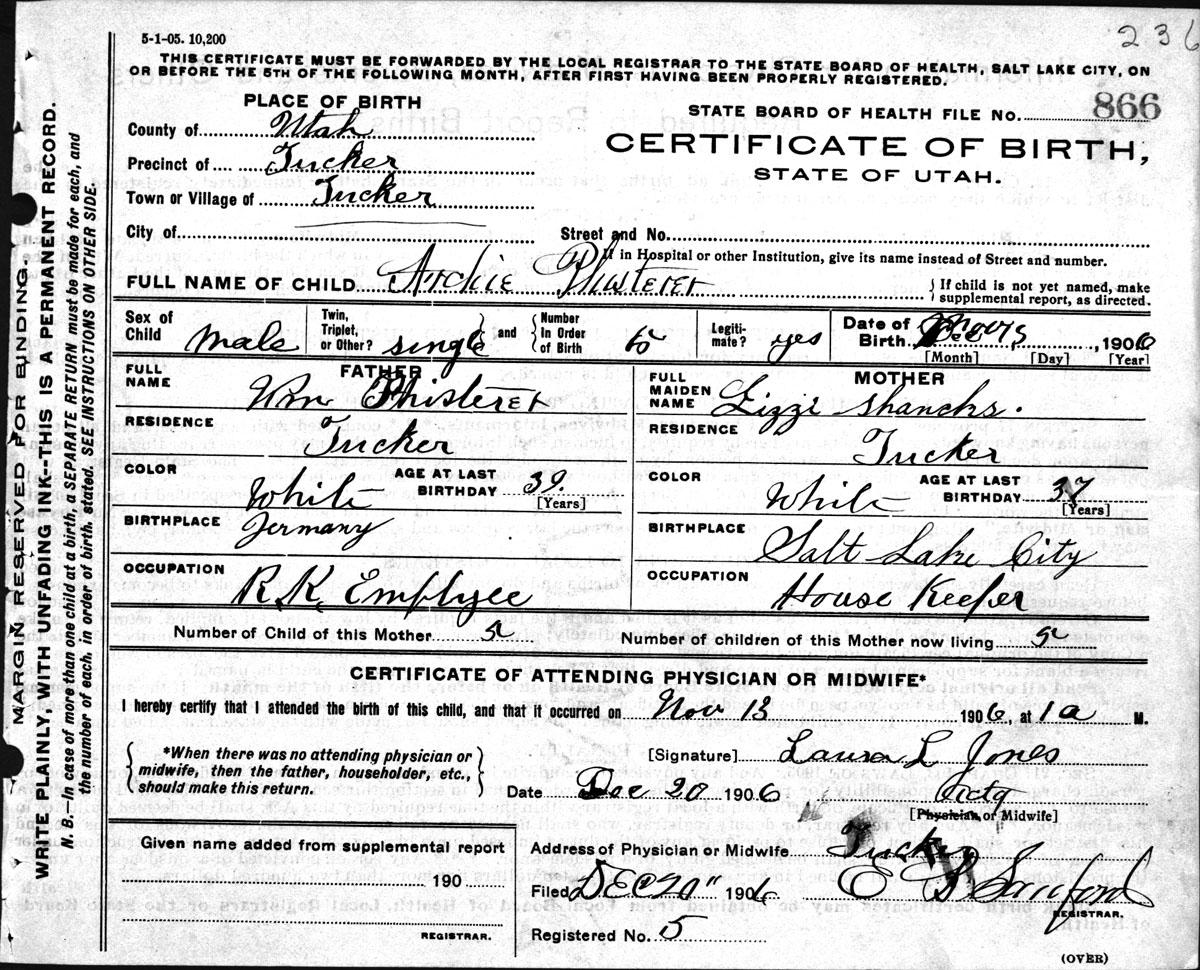 236
5-1-05. 10,200
THIS CERTIFICATE MUST BE FORWARDED BY THE LOCAL REGISTRAR TO THE STATE BOARD OF HEALTH, SALT LAKE CITY, ON
OR BEFORE THE 5TH OF THE FOLLOWING MONTH, AFTER FIRST HAVING BEEN PROPERLY REGISTERED.
PLACE OF BIRTH
STATE BOARD OF HEALTH FILE No. 866
County of Utah
CERTIFICATE OF BIRTH,
Precinct of Tucker
STATE OF UTAH.
Town or Village of Tucker
City of Street and No.
If in Hospital or other Institution, give its name instead of Street and number.
FULL NAME OF CHILD Archie Phisterer
{If child is not yet named, make
supplemental report, as directed.
Sex of Child male
Twin, Triplet, or Other? single and
Number In Order of Birth
Legitimate? yes
Date of Birth 1906
[Month] [Day] [Year]
FATHER
FULL NAME Wm Phisterer
RESIDENCE Tucker
COLOR White AGE AT LAST BIRTHDAY 39 [Years]
BIRTHPLACE Germany
OCCUPATION R.R. Emplyee
MOTHER
FULL MAIDEN NAME Lizzi Shancks.
RESIDENCE Tucker
COLOR White AGE AT LAST BIRTHDAY 37 [Years]
BIRTHPLACE Salt Lake City
OCCUPATION House Keeper
Number of Child of this Mother 5 Number of children of this Mother now living 5
CERTIFICATE OF ATTENDING PHYSICIAN OR MIDWIFE*
I hereby certify that I attended the birth of this child, and that it occurred on Nov 13 1906, at 1 a M.
*When there was no attending physician or
midwife, then the father, householder, etc.,
should make this return.
[Signature] Laura L Jones
Date Dec 20 1906
[Physician, or Midwife]
Given name added from supplemental report
190
REGISTRAR.
Address of Physician or Midwife Tucker
Filed DEC 20" 1906 Sanford
REGISTRAR.
Registered No. 5
(OVER)
MARGIN RESERVED FOR BINDING.
WRITE PLAINLY, WITH UNFADING INK--THIS IS A PERMANENT RECORD.
N. B. In case of more than one child at a birth, a SEPARATE RETURN must be made for each, and
the number of each, in order of birth, stated. SEE INSTRUCTIONS ON OTHER SIDE.